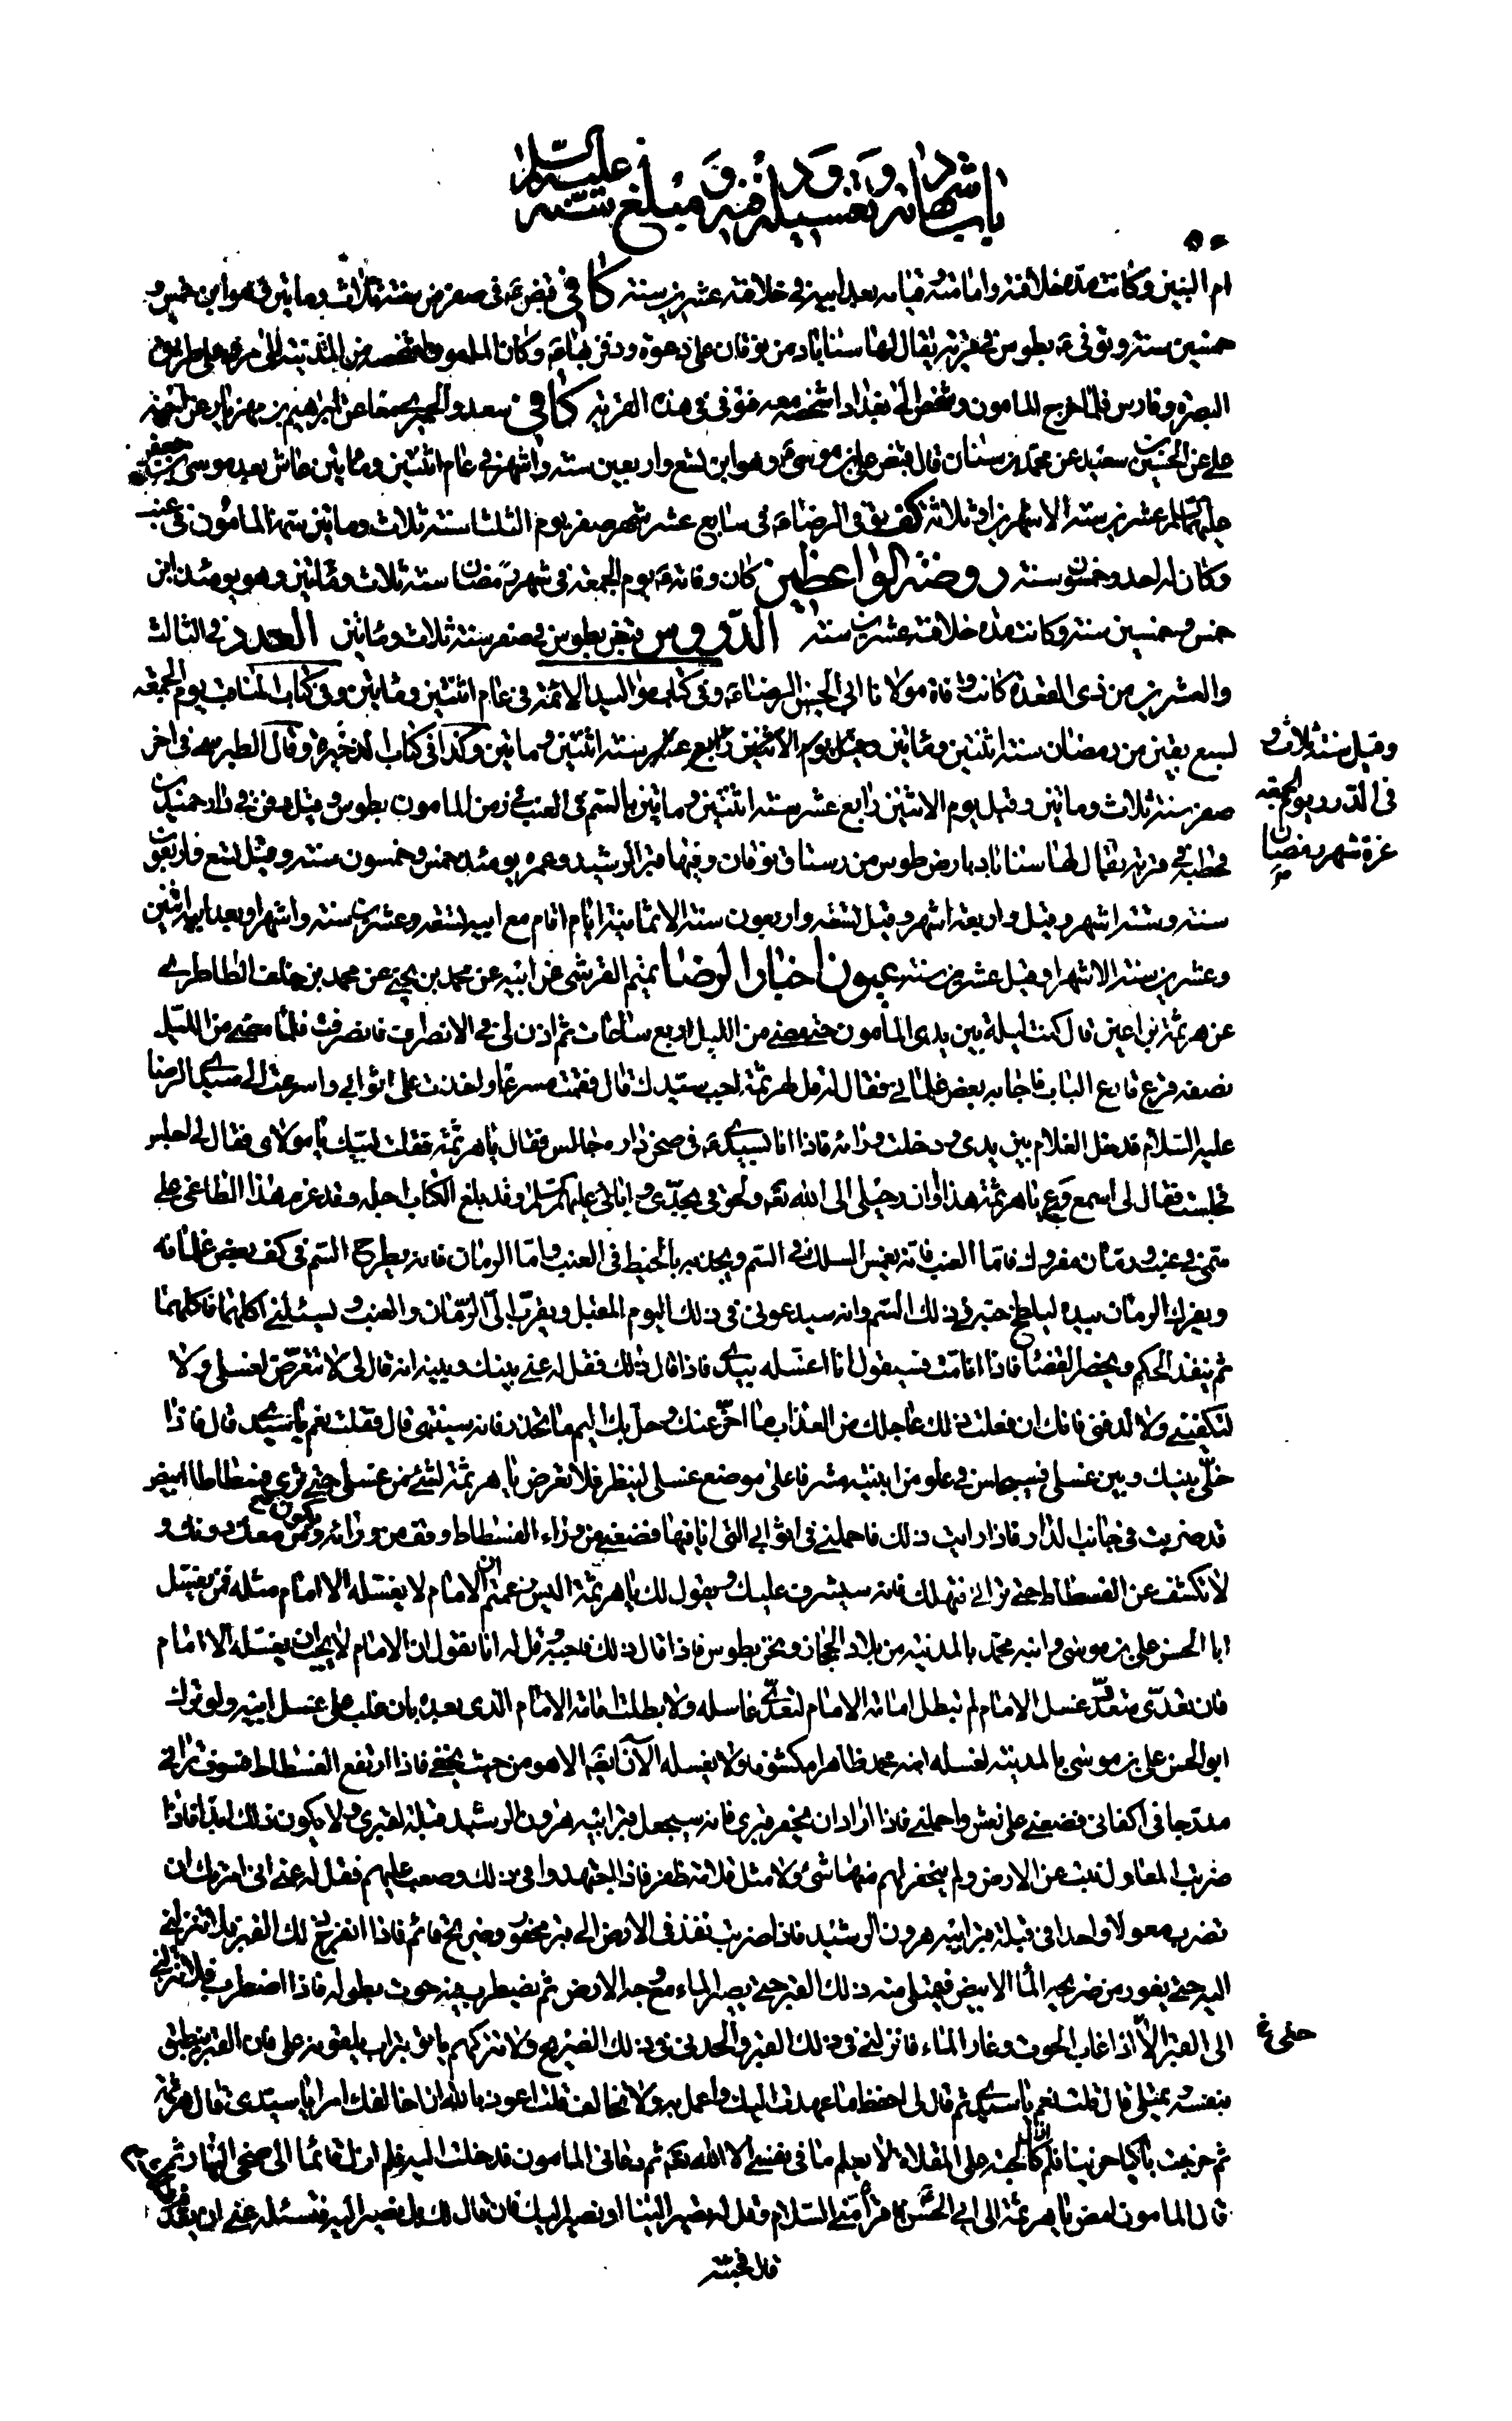 باب شهادته وتغسيله ودفنه ومبلغ سنه عليه السلام
ام البنين وكانت مدة خلافته وامامته بعد ابيه في خلافته عشرين سنة كافي قبض ع في صفر من سنة ثلاث ومائتين وهو ابن خمس و
خمسين سنة وتوفي ع بطوس في قرية يقال لها سناباد من نوقان على دعوة ودفن بها ع وكان المامون اشخصه من المدينة الى مرو على طريق
البصرة وفارس فلما خرج المامون وشخص الى بغداد اشخصه معه فتوفي في هذه القرية كافي سعد والحميري معا عن ابراهيم بن مهزيار عن اخيه
علي عن الحسين بن سعيد عن محمد بن سنان قال قبض علي بن موسى ع وهو ابن تسع واربعين سنة واشهر في عام اثنتين ومائتين عاش بعد موسى بن جعفر
عليهما السلام عشرين سنة الا شهرين او ثلاثة كف توفي الرضا ع في سابع عشر شهر صفر يوم الثلثا سنة ثلاث ومائتين سمه المامون في عنب
وكان له احد وخمسون سنة روضة الواعظين كان وفاته ع يوم الجمعة في شهر رمضان سنة ثلاث ومائتين وهو يومئذ ابن
خمس وخمسين سنة وكانت مدة خلافته عشرين سنة الدروس قبض بطوس في صفر سنة ثلاث ومائتين العدد في الثالث
والعشرين من ذي القعدة كانت وفاة مولانا ابي الحسن الرضا ع وفي كتاب مواليد الائمة في عام اثنتين ومائتين وفي كتاب المناقب يوم الجمعة
لسبع بقين من رمضان سنة اثنتين ومائتين وقيل يوم الاثنين رابع عشر سنة اثنتين ومائتين وكذا في كتاب الذخيرة وقال الطبرسي في اخر
وقيل سنة ثلاث و
في الدر يوم الجمعة
غرة شهر رمضان
صفر سنة ثلاث ومائتين وقيل يوم الاثنين رابع عشر سنة اثنتين ومائتين بالسم في العنب في زمن المامون بطوس وقيل دفن في دار حميد بن
قحطبة في قرية يقال لها سناباد بارض طوس من رستاق نوقان وفيها قبر الرشيد وعمره يومئذ خمس وخمسون سنة وقيل تسع واربعون
سنة وستة اشهر وقيل واربعة اشهر وقيل تسعة واربعون سنة الا ثمانية ايام اقام مع ابيه تسعة وعشرين سنة واشهرا وبعد ابيه اثنين
وعشرين سنة الا شهرا وقيل عشرين سنة عيون اخبار الرضا تميم القرشي عن ابيه عن محمد بن يحيى عن محمد بن خلف الطاطري
عن هرثمة بن اعين قال كنت ليلة بين يدي المامون حتى مضى من الليل اربع ساعات ثم اذن لي في الانصراف فانصرفت فلما مضى من الليل
نصفه قرع قارع الباب فاجابه بعض غلماني فقال له قل لهرثمة اجب سيدك قال فقمت مسرعا واخذت على اثوابي واسرعت الى سيدي الرضا
عليه السلام فدخل الغلام بين يدي ودخلت وراءه فاذا انا بسيدي ع في صحن داره جالس فقال يا هرثمة فقلت لبيك يا مولاي فقال لي اجلس
فجلست فقال لي اسمع وع يا هرثمة هذا اوان رحيلي الى الله تعالى ولحوقي بجدي وابائي عليهم السلام وقد بلغ الكتاب اجله وقد عزم هذا الطاغي على
سمي في عنب ورمان مفروك فاما العنب فانه يغمس السلك في السم ويجذبه بالخيط في العنب واما الرمان فانه يطرح السم في كف بعض غلمانه
ويفرك الرمان بيده ليلطخ حبه في ذلك السم وانه سيدعوني في ذلك اليوم المقبل ويقرب الي الرمان والعنب ويسئلني اكلهما فاكلهما
ثم ينفذ الحكم ويحضر القضاء فاذا انا مت فسيقول انا اغسله بيدي فاذا قال ذلك فقل له عني بينك وبينه انه قال لي لا تتعرض لغسلي ولا
لتكفيني ولا لدفني فانك ان فعلت ذلك عاجلك من العذاب ما اخر عنك وحل بك اليم ما تحذر فانه سينتهي قال فقلت نعم يا سيدي قال فاذا
خلى بينك وبين غسلي فسيجلس في علو من ابنيته مشرفا على موضع غسلي لينظر فلا تعرض يا هرثمة لشئ من غسلي حتى ترى فسطاطا ابيض
قد ضربت في جانب الدار فاذا رايت ذلك فاحملني في اثوابي التي انا فيها فضعني من وراء الفسطاط وقف من ورائه ويكون من معك دونك و
لا تكشف عن الفسطاط حتى تراني فتهلك فانه سيشرف عليك ويقول لك يا هرثمة اليس زعمتم ان الامام لا يغسله الا امام مثله فمن يغسل
ابا الحسن علي بن موسى وابنه محمد بالمدينة من بلاد الحجاز ونحن بطوس فاذا قال ذلك فاجبه وقل له انا نقول ان الامام لا يجب ان يغسله الا امام
فان تعدى متعد فغسل الامام لم تبطل امامة الامام لتعدي غاسله ولا بطلت امامة الامام الذي بعده بان غلب على غسل ابيه ولو ترك
ابو الحسن علي بن موسى بالمدينة لغسله ابنه محمد ظاهرا مكشوفا ولا يغسله الآن ايضا الا هو من حيث يخفى فاذا ارتفع الفسطاط فسوف تراني
مدرجا في اكفاني فضعني على نعش واحملني فاذا اراد ان يحفر قبري فانه سيجعل قبر ابيه هرون الرشيد قبلة لقبري ولا يكون ذلك ابدا فاذا
ضربت المعاول نبت عن الارض ولم ينحفر لهم منها شئ ولا مثل قلامة ظفر فاذا اجتهدوا في ذلك وصعب عليهم فقل له عني اني امرتك ان
تضرب معولا واحدا في قبلة قبر ابيه هرون الرشيد فاذا ضربت نفذ في الارض الى قبر محفور وضريح قائم فاذا انفرج ذلك القبر فلا تنزلني
اليه حتى يفور من ضريحه الماء الابيض فيمتلي منه ذلك القبر حتى يصير الماء مع وجه الارض ثم يضطرب فيه حوت بطوله فاذا اضطرب فلا تنزلني
الى القبر الا اذا غاب الحوت وغار الماء فانزلني في ذلك القبر والحدني في ذلك الضريح ولا تتركهم ياتوا بتراب يلقونه علي فان القبر ينطبق
بنفسه ويمتلي قال قلت نعم يا سيدي ثم قال لي احفظ ما عهدت اليك واعمل به ولا تخالف قلت اعوذ بالله ان اخالف لك امرا يا سيدي قال هرثمة
ثم خرجت باكيا حزينا فلم ازل كالحبة على المقلاة لا يعلم ما في نفسي الا الله تعالى ثم دعاني المامون فدخلت اليه فلم ازل قائما الى ضحى النهار ثم
قال المامون امض يا هرثمة الى ابي الحسن ع فاقرأه مني السلام وقل له تصير الينا او نصير اليك فان قال لك بل نصير اليه فتسئله عني ان يقدم
قال فجئته